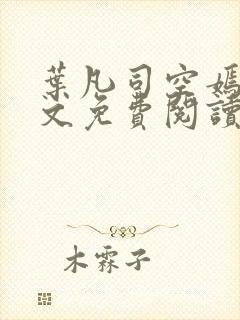 葉凡司空嫣
文免費閱讀
木霖子